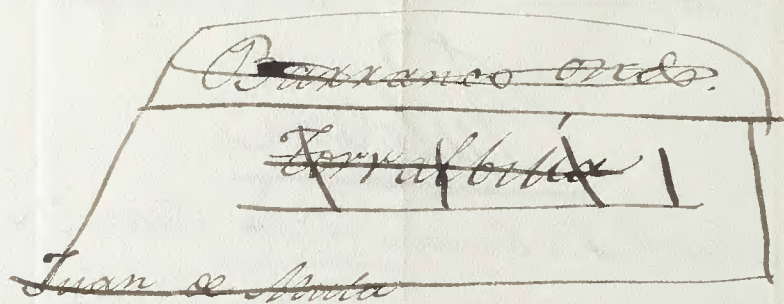 Barranco ondo.
Torralbilla
Juan de Mata